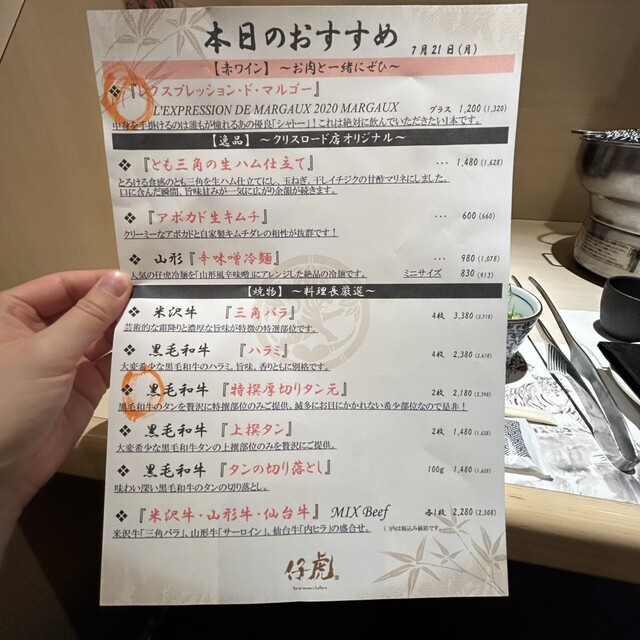 本日のおすすめ 7月21日(月)
【赤ワイン】 ～お肉と一緒にぜひ～
❖『レクスプレッション・ド・マルゴー』
L'EXPRESSION DE MARGAUX 2020 MARGAUX グラス 1,200 (1,320)
中身を手掛けるのは誰もが憧れるあの優良「シャトー」！これは絶対に飲んでいただきたい1本です。
【逸品】 ～クリスロード店オリジナル～
❖『とも三角の生ハム仕立て』 … 1,480 (1,628)
とろける食感のとも三角を生ハム仕立てにし、玉ねぎ、干しイチジクの甘酢マリネにしました。
口に含んだ瞬間、旨味甘みが一気に広がり余韻が続きます。
❖『アボカド生キムチ』 … 600 (660)
クリーミーなアボカドと自家製キムチダレの相性が抜群です！
❖ 山形『辛味噌冷麺』 … 980 (1,078)
人気の仔虎冷麺を「山形風辛味噌」にアレンジした絶品の冷麺です。 ミニサイズ 830 (913)
【焼物】 ～料理長厳選～
❖ 米沢牛 『三角バラ』 4枚 3,380 (3,718)
芸術的な霜降りと濃厚な旨味が特徴の特選部位です。
❖ 黒毛和牛 『ハラミ』 4枚 2,380 (2,618)
大変希少な黒毛和牛のハラミ。旨味、香りともに別格です。
❖ 黒毛和牛 『特撰厚切りタン元』 2枚 2,180 (2,398)
黒毛和牛のタンを贅沢に特撰部位のみご提供。滅多にお目にかかれない希少部位なので是非！
❖ 黒毛和牛 『上撰タン』 2枚 1,480 (1,628)
大変希少な黒毛和牛タンの上撰部位のみを贅沢にご提供。
❖ 黒毛和牛 『タンの切り落とし』 100g 1,480 (1,628)
味わい深い黒毛和牛のタンの切り落とし。
❖『米沢牛・山形牛・仙台牛』 MIX Beef 各1枚 2,280 (2,508)
米沢牛「三角バラ」、山形牛「サーロイン」、仙台牛「内ヒラ」の盛合せ。 ( )内は税込み価格です
仔虎